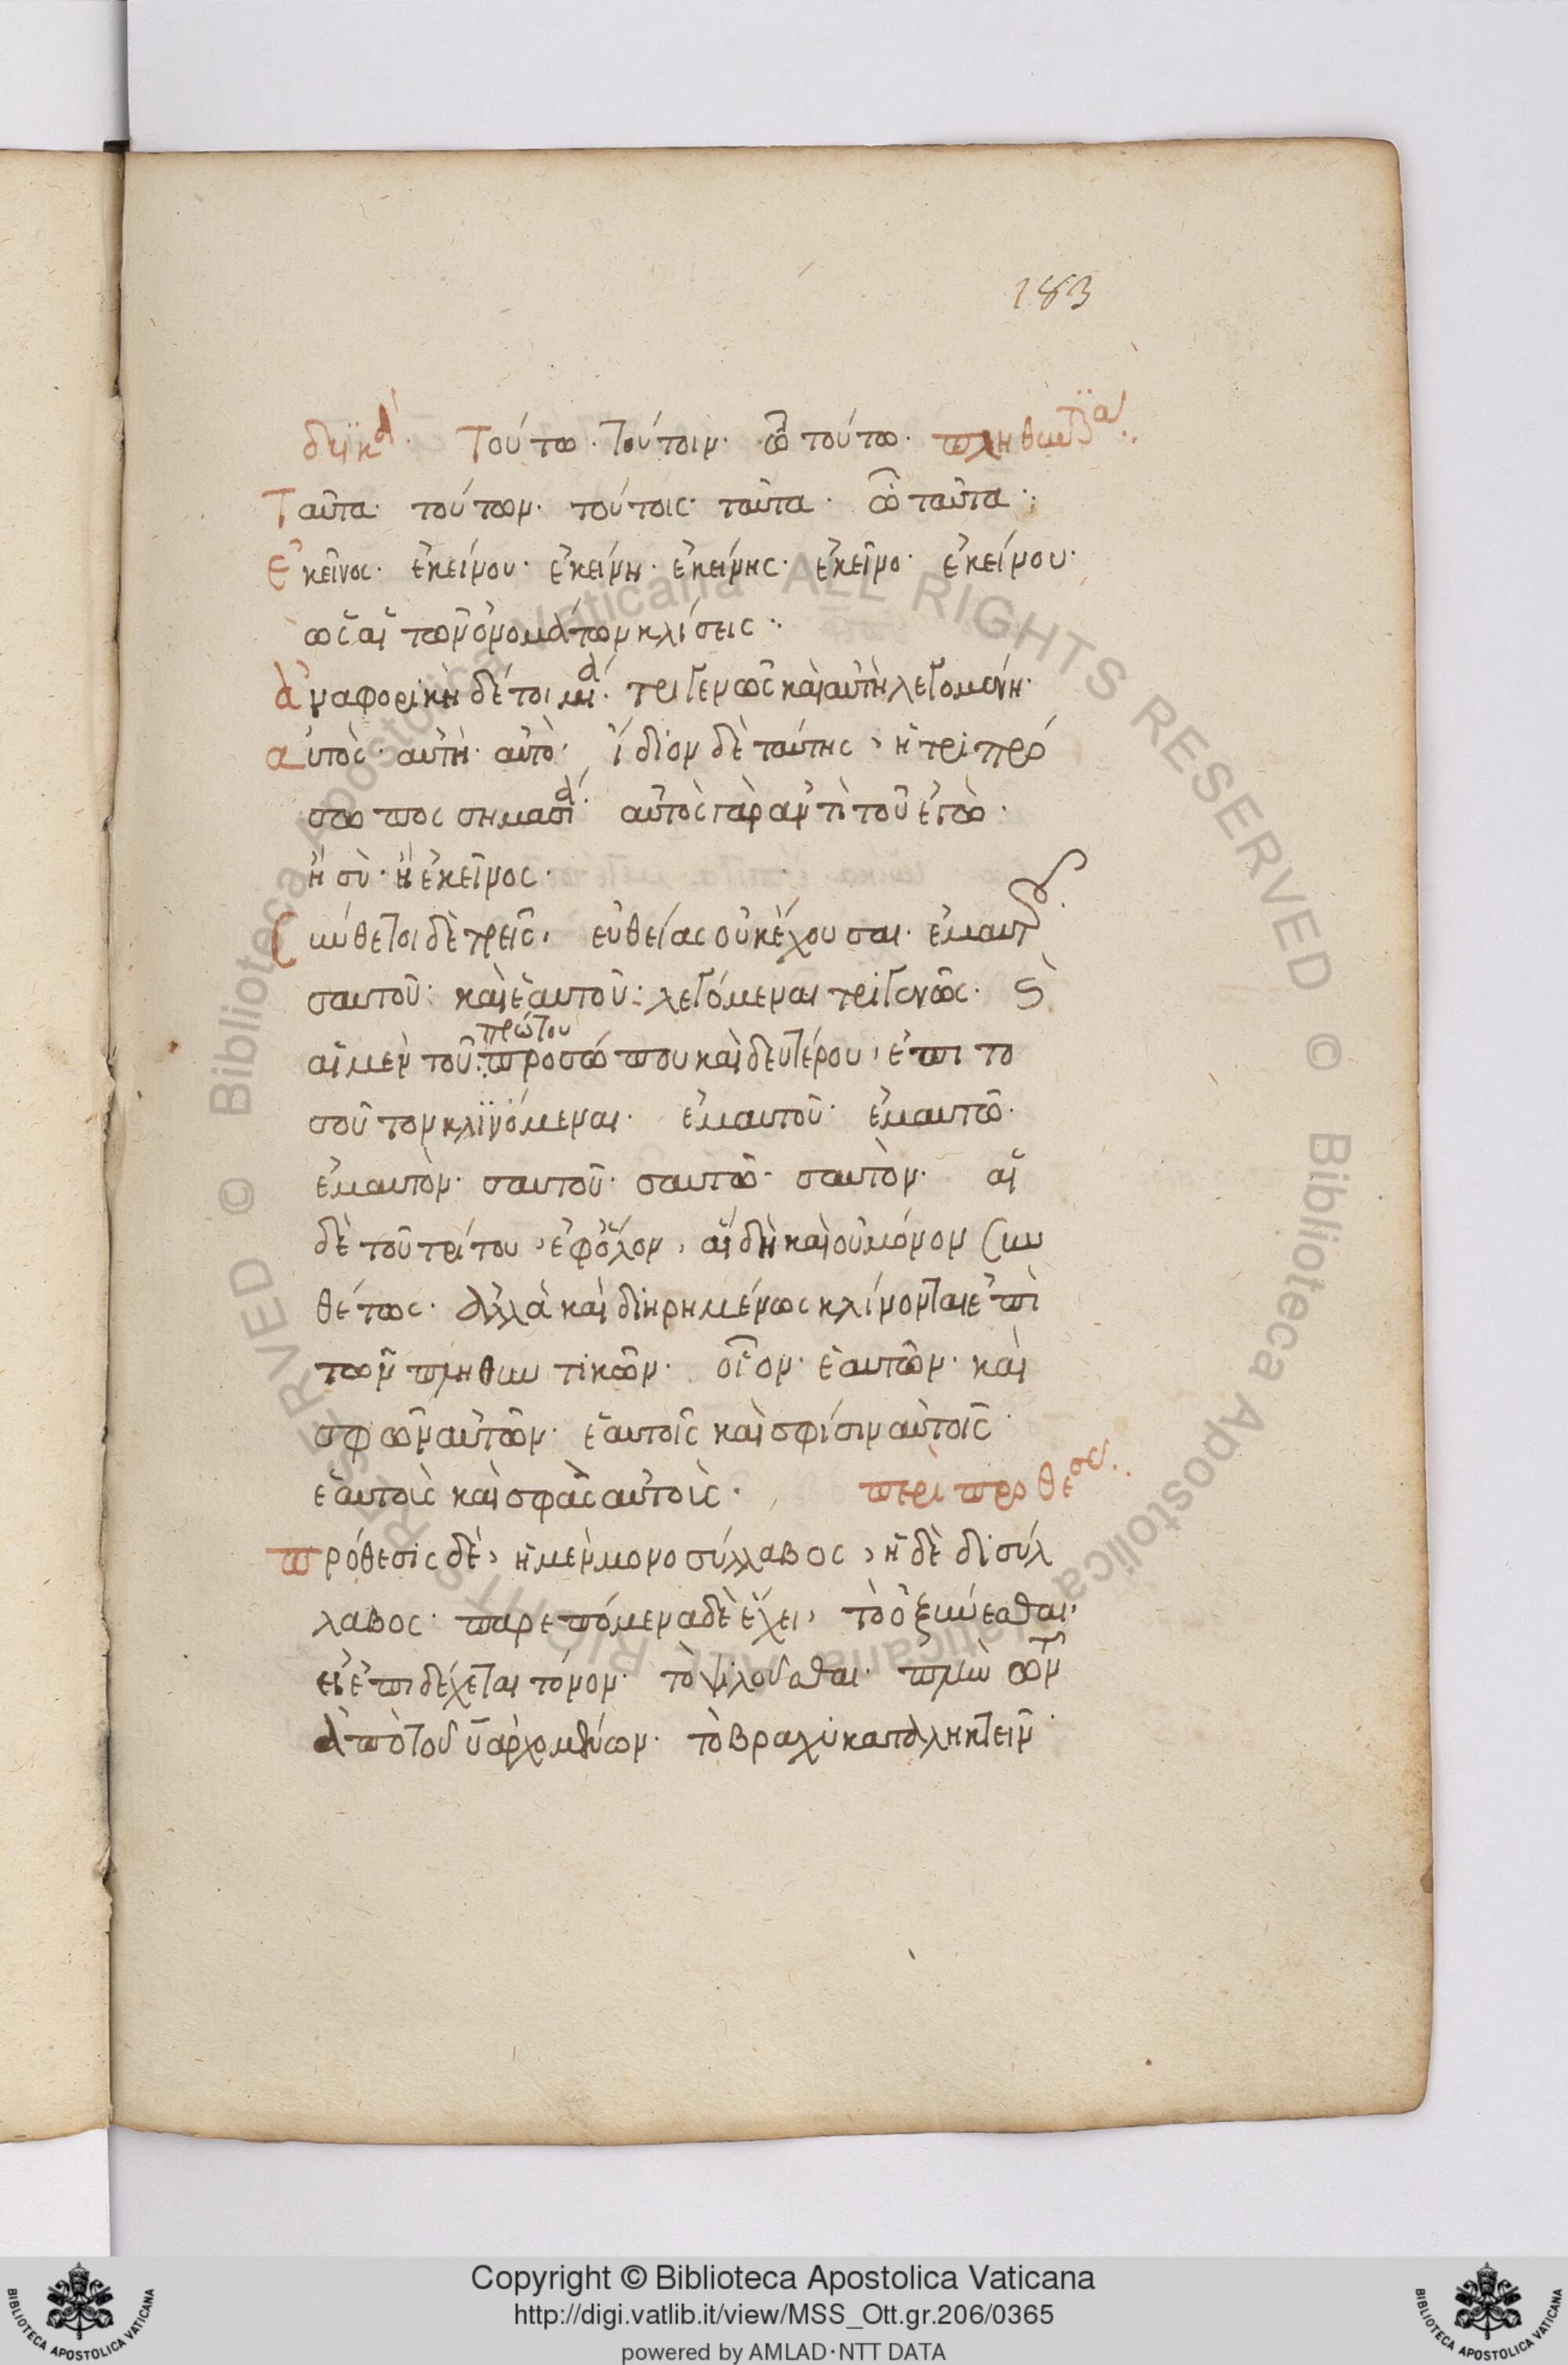 183
δυϊκά· Τούτω · τούτοιν · ὦ τούτω · πληθυντικά:
Ταῦτα · τούτων · τούτοις · ταῦτα · ὦ ταῦτα:
Ἐκεῖνος · ἐκείνου · ἐκείνη · ἐκείνης · ἐκεῖνο · ἐκείνου·
ὡς αἱ τῶν ὀνομάτων κλίσεις:
Ἀναφορικὴ δέ τοι μία · τριγενῶς καὶ αὐτὴ λεγομένη·
αὐτός · αὐτή · αὐτό · ἴδιον δὲ ταύτης, ἡ τριπρό
σωπος σημασία· αὐτὸς γὰρ ἀντὶ τοῦ ἐγὼ·
ἢ σὺ · ἢ ἐκεῖνος·
Σύνθετοι δὲ τρεῖς, εὐθείας οὐκ ἔχουσαι · ἐμαυτοῦ·
σαυτοῦ · καὶ ἑαυτοῦ: λεγόμεναι τριγενῶς ·
αἱ μὲν τοῦ πρώτου προσώπου καὶ δευτέρου, ἐπι το
σοῦτον κλϊνόμεναι · ἐμαυτοῦ · ἐμαυτῶ·
ἐμαυτὸν · σαυτοῦ · σαυτῶ · σαυτὸν · αἱ
δὲ τοῦ τρίτου, ἐφ' ὅλον, αἳ δὴ καὶ οὐ μόνον συν
θέτως · ἀλλὰ καὶ διηρημένως κλίνονται ἐπὶ
τῶν πληθυντικῶν · οἷον · ἑαυτῶν · καὶ
σφῶν αὐτῶν · ἑαυτοῖς καὶ σφίσιν αὐτοῖς·
ἑαυτοὺς καὶ σφᾶς αὐτοὺς · περὶ προθέσεως:
Πρόθεσις δὲ, ἡ μὲν μονοσύλλαβος, ἡ δὲ δισύλ
λαβος · παρεπόμενα δὲ ἔχει, τὸ ὀξύνεσθαι,
εἰ ἐπιδέχεται τόνον · τὸ ψιλοῦσθαι · πλὴν τῶν
ἀπὸ τοῦ υ ἀρχομένων · τὸ βραχυκαταληκτεῖν·
Copyright © Biblioteca Apostolica Vaticana
http://digi.vatlib.it/view/MSS_Ott.gr.206/0365
powered by AMLAD·NTT DATA
BIBLIOTECA APOSTOLICA VATICANA
BIBLIOTECA APOSTOLICA VATICANA
© Biblioteca Apostolica Vaticana ALL RIGHTS RESERVED
© Biblioteca Apostolica Vaticana ALL RIGHTS RESERVED